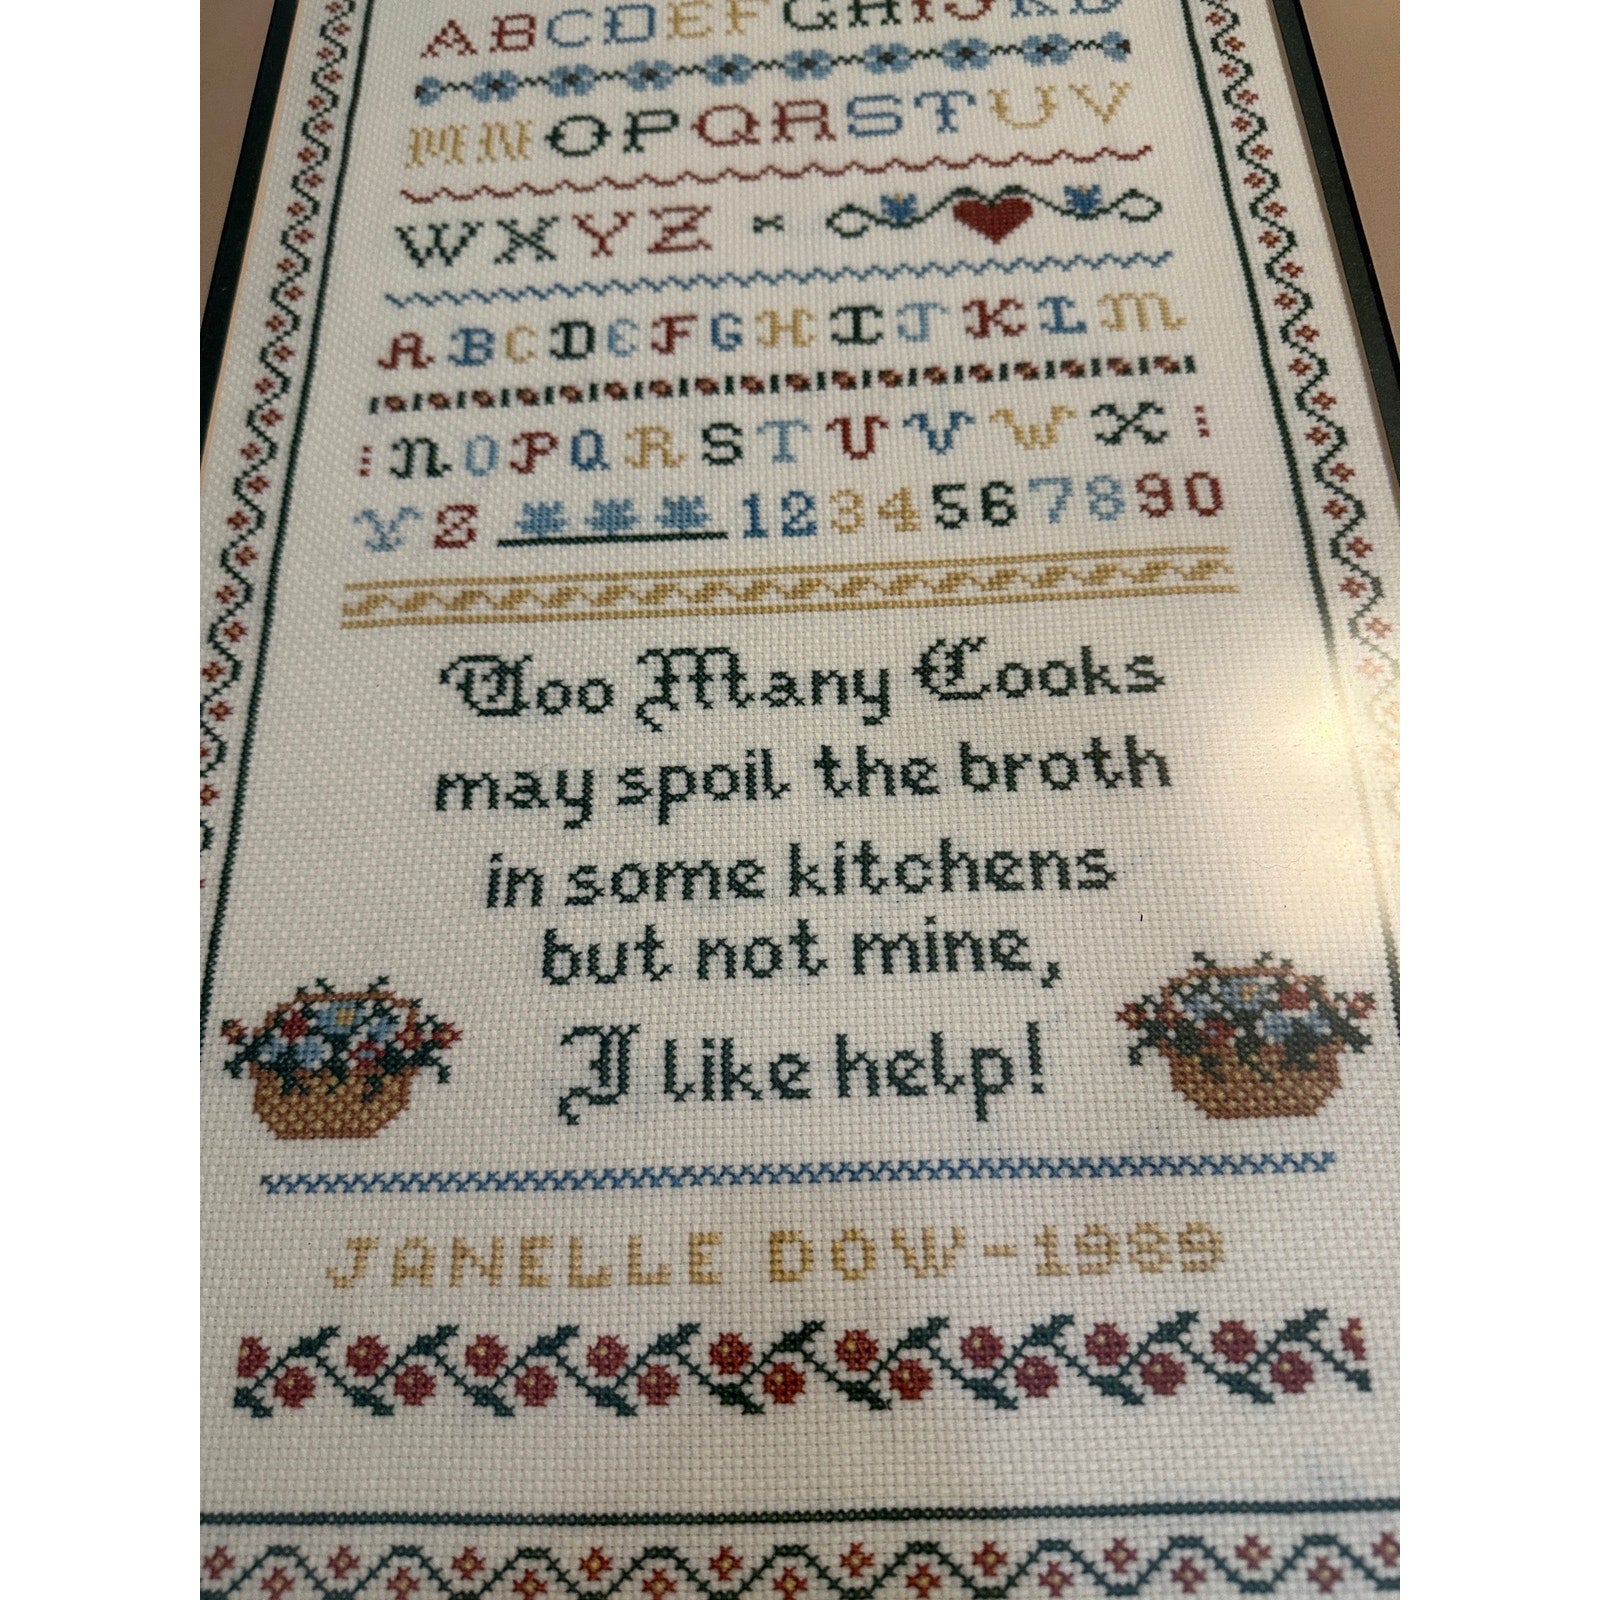 ABCDEFGHIJKL
MNOPQRSTUV
WXYZ
ABCDEFGHIJKLM
NOPQRSTUVWX
YZ 1234567890
Too Many Cooks
may spoil the broth
in some kitchens
but not mine,
I like help!
JANELLE DOW-1989